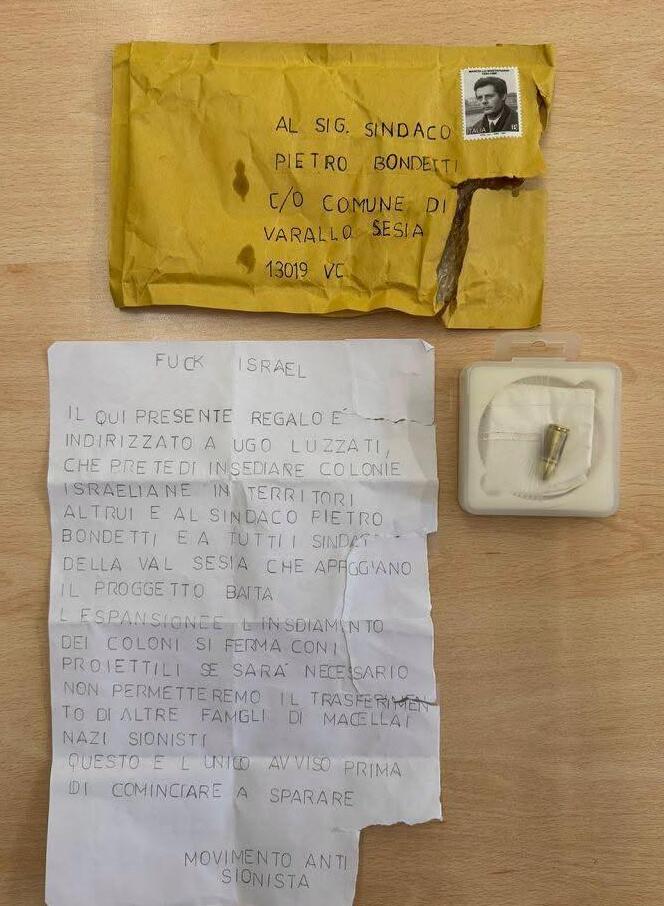 AL SIG. SINDACO
PIETRO BONDETTI
C/O COMUNE DI
VARALLO SESIA
13019 VC
ITALIA
FUCK ISRAEL
IL QUI PRESENTE REGALO E'
INDIRIZZATO A UGO LUZZATI,
CHE PRETEDI INSEDIARE COLONIE
ISRAELIANE IN TERRITORI
ALTRUI E AL SINDACO PIETRO
BONDETTI E A TUTTI I
DELLA VAL SESIA CHE APPGGIANO
IL PROGGETTO BAITA
L ESPANSIONE E L INSDIAMENTO
DEI COLONI SI FERMA CON I
PROIETTILI SE SARA' NECESSARIO
NON PERMETTEREMO IL TRASFERIMEN
TO DI ALTRE FAMGLI DI MACELLAI
NAZI SIONISTI
QUESTO E L UNICO AVVISO PRIMA
DI COMINCIARE A SPARARE
MOVIMENTO ANTI
SIONISTA